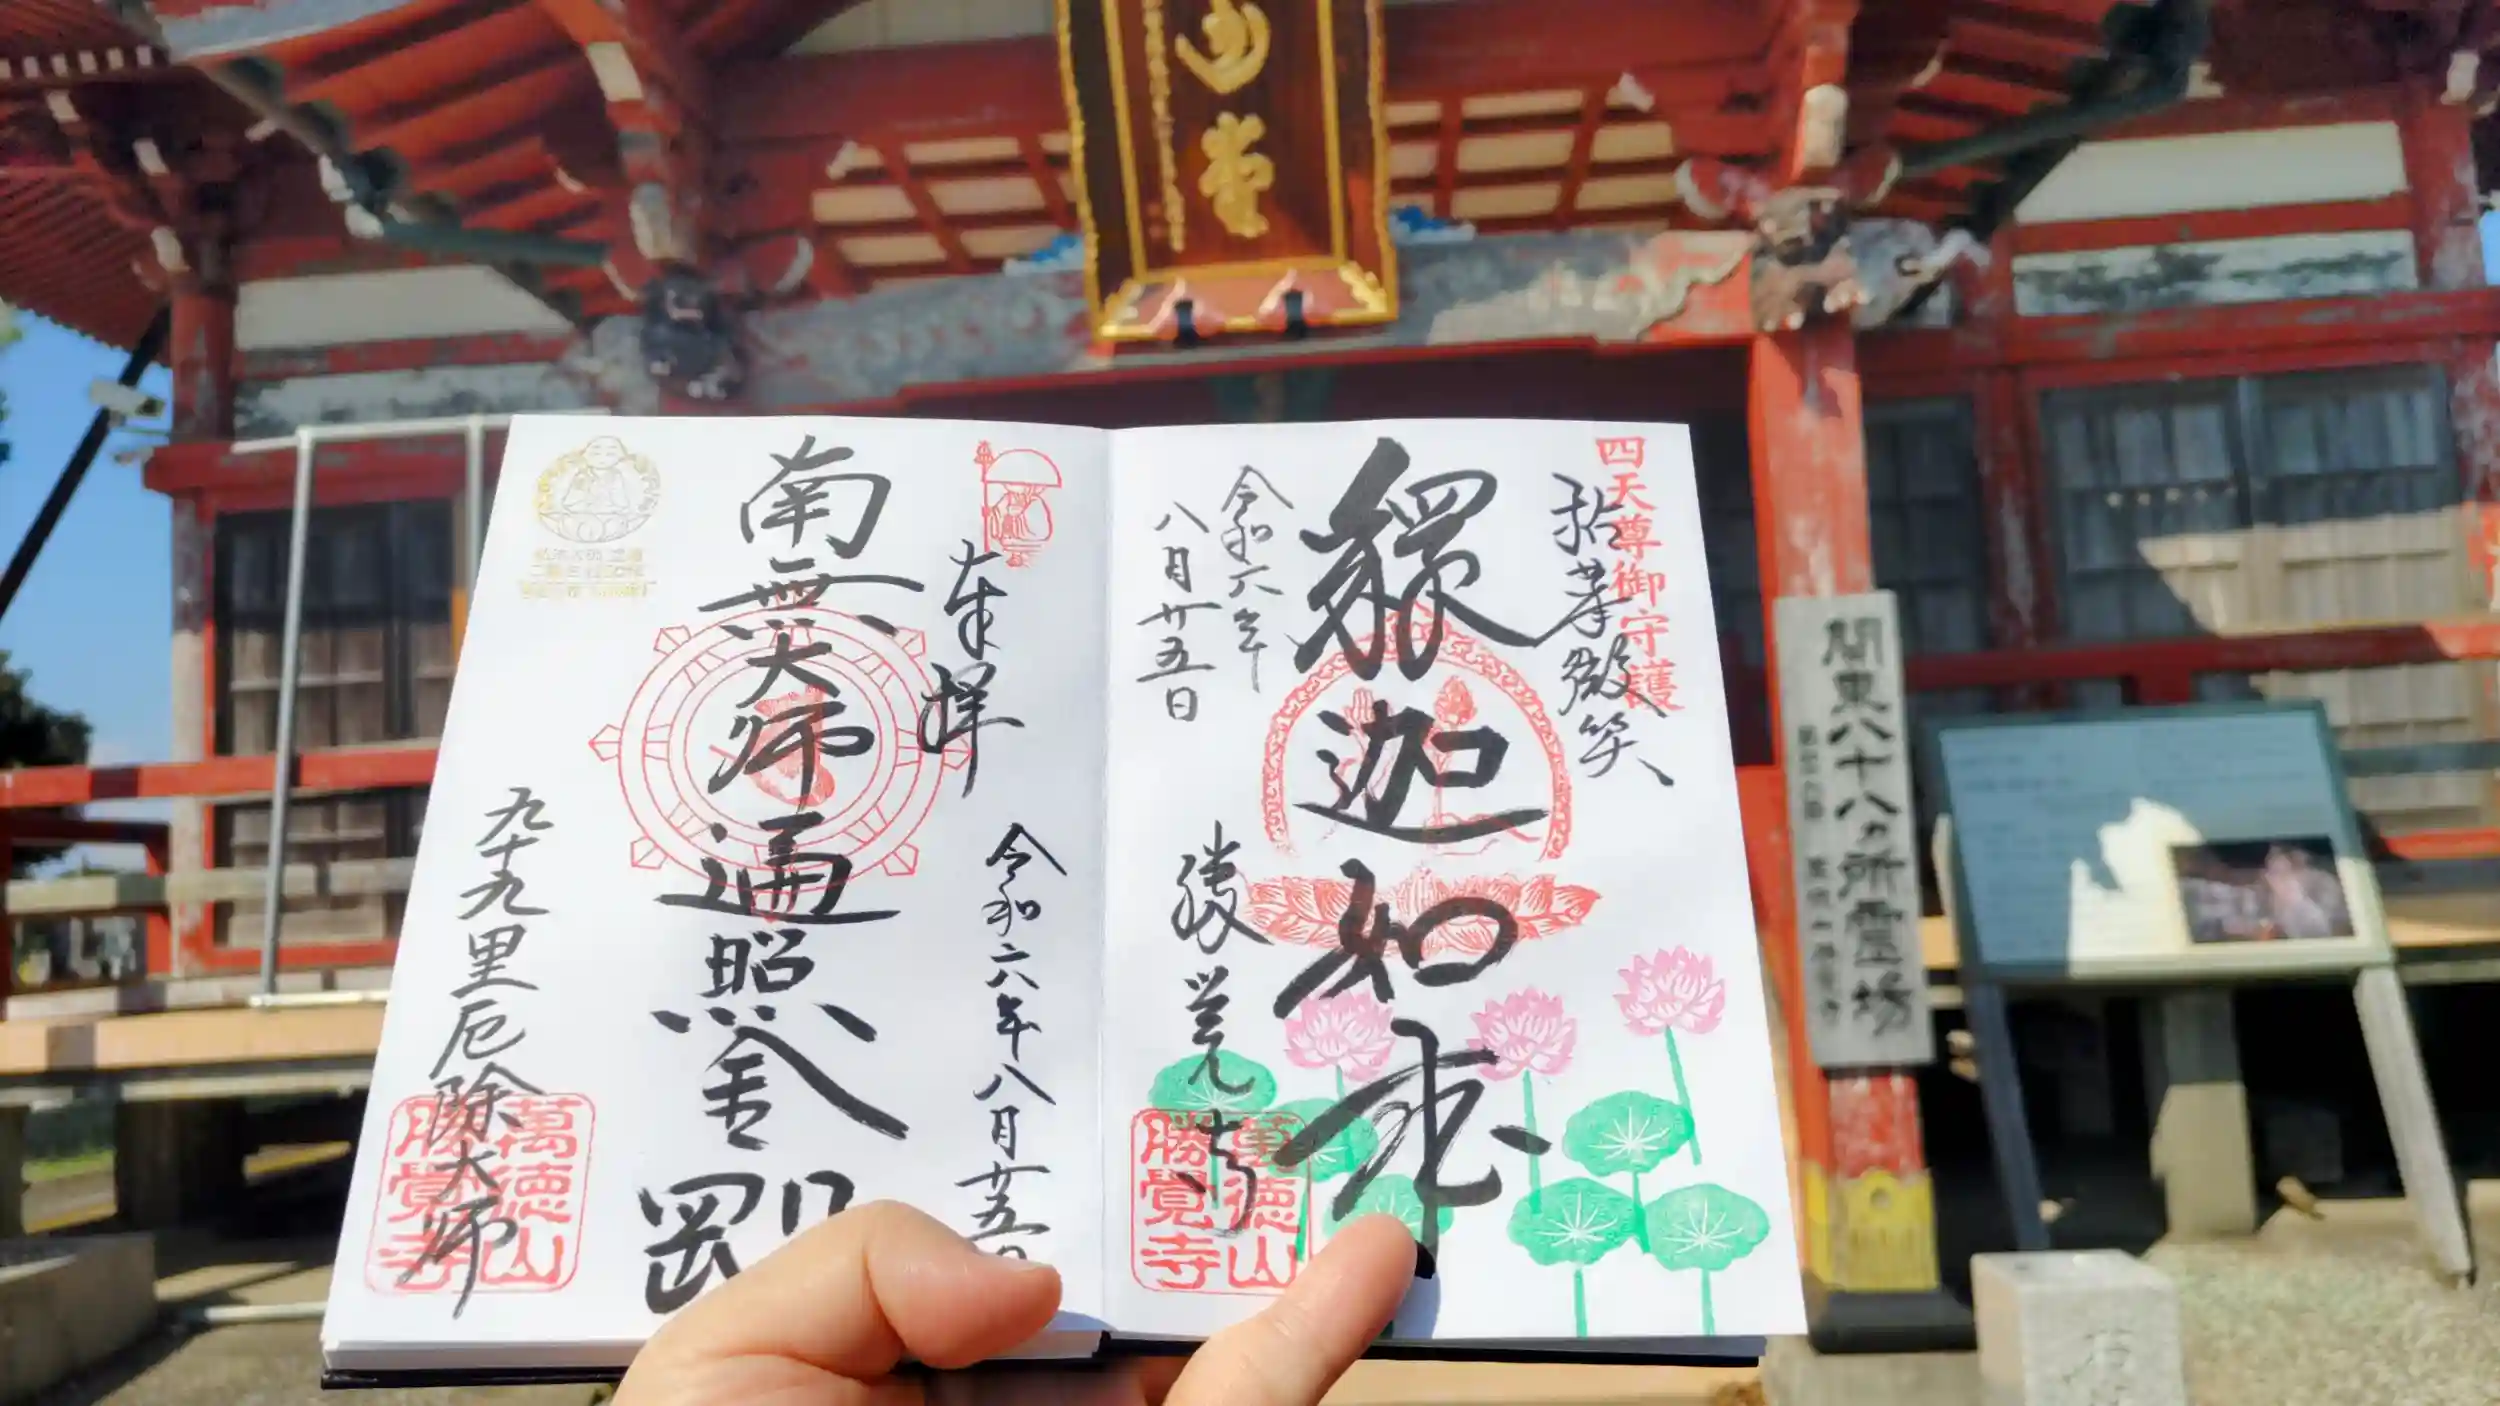 堂
四天尊御守護
拈華微笑
釋迦如来
令和六年
八月廿五日
勝覚寺
萬徳山
勝覺寺
奉拝
令和六年八月廿五日
南無大師遍照金剛
九十九里厄除大師
萬徳山
勝覺寺
関東八十八ヵ所霊場